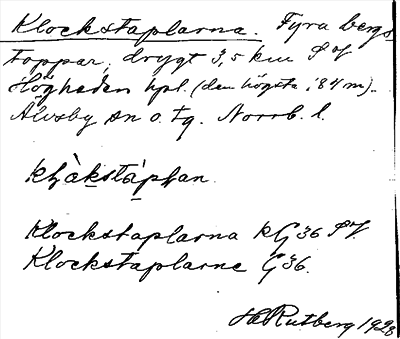 Klockstaplarna. Fyra bergs
toppar, drygt 3,5 km S of
Högheden hpl. (den högste 184 m).
Älvsby sn o. tg. Norrb. l.
Klockstaplarna kG 36 S of.
Klockstaplarne G 36.
H Rutberg 1928